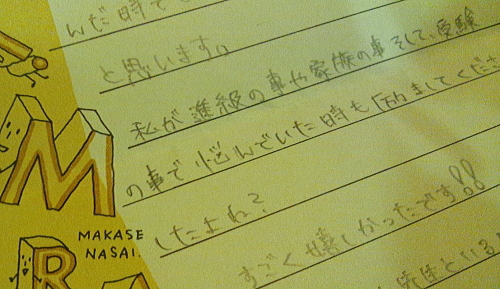 んだ時で
と思います。
私が進級の事や家族の事そして、受験
の事で悩んでいた時も励ましてくださ
したよね?
すごく嬉しかったです!!
先生といる
M
MAKASE
NASAI.
R